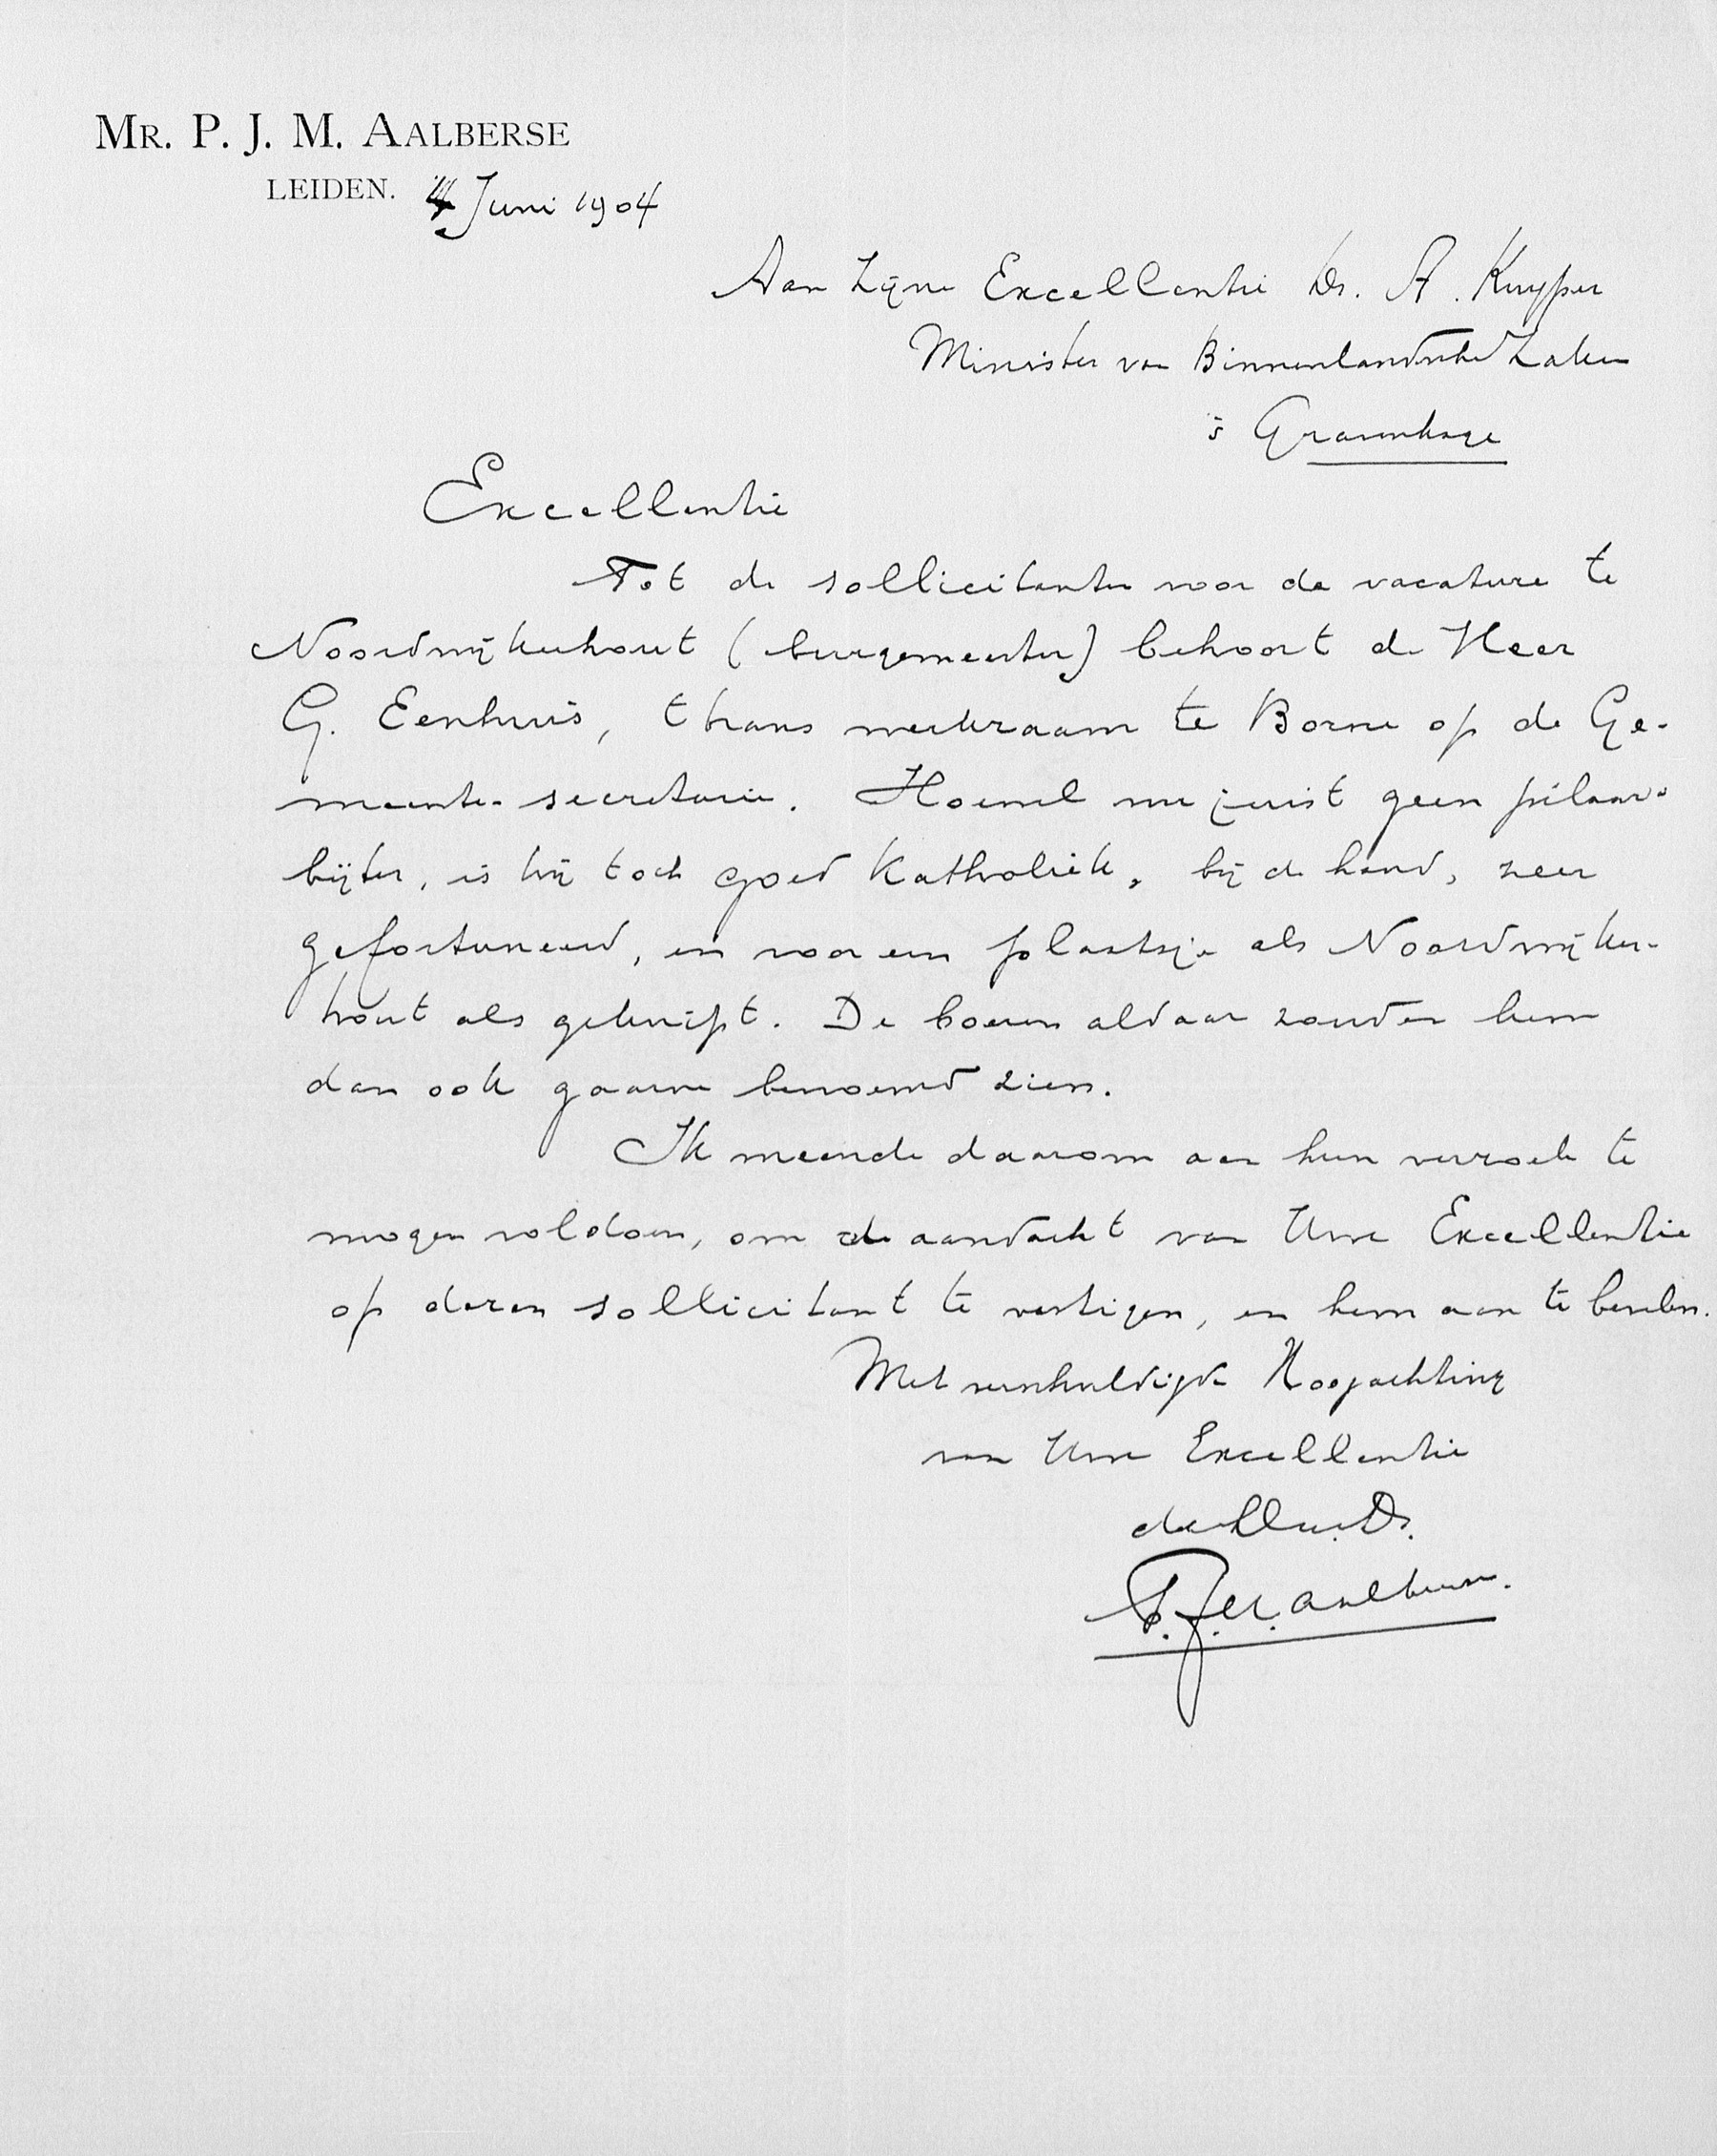 MR. P. J. M. AALBERSE
LEIDEN. 4 Juni 1904
Aan Zijne Excellentie Dr. A. Kuyper
Minister van Binnenlandsche Zaken
's Gravenhage
Excellentie
Tot de sollicitanten voor de vacature te
Noordwijkerhout (burgemeester) behoort de Heer
G. Eenhuis, thans werkzaam te Borne op de Ge-
meente-secretarie. Hoewel nu juist geen pilaar-
bijter, is hij toch goed Katholiek, bij de hand, zeer
gefortuneerd, en voor een plaatsje als Noordwijker-
hout als geknipt. De boeren aldaar zouden hem
dan ook gaarne benoemd zien.
Ik meende daarom aan hun verzoek te
mogen voldoen, om de aandacht van Uwe Excellentie
op dezen sollicitant te vestigen, en hem aan te bevelen.
Met verschuldigde Hoogachting
van Uwe Excellentie
de dw. Dr.
P.J.M. Aalberse.